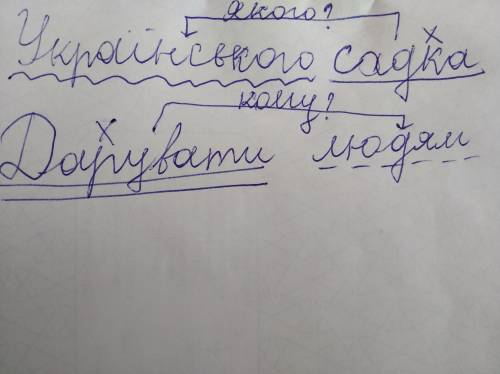 якого?
Українського садка
кому?
Дарувати людям